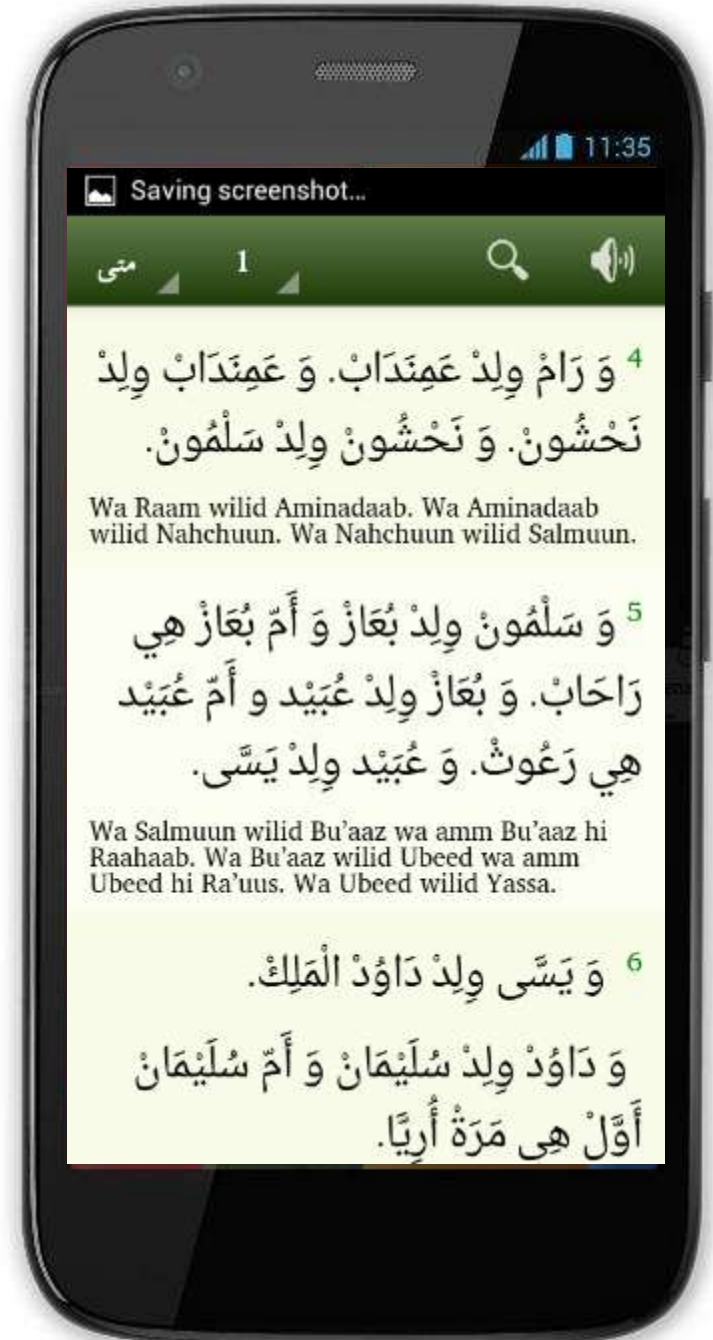 11:35
Saving screenshot...
متى 1
4 وَ رَامْ وِلِدْ عَمِنَدَابْ. وَ عَمِنَدَابْ وِلِدْ
نَحْشُونْ. وَ نَحْشُونْ وِلِدْ سَلْمُونْ.
Wa Raam wilid Aminadaab. Wa Aminadaab
wilid Nahchuun. Wa Nahchuun wilid Salmuun.
5 وَ سَلْمُونْ وِلِدْ بُعَازْ وَ أَمّ بُعَازْ هِي
رَاحَابْ. وَ بُعَازْ وِلِدْ عُبَيْد و أَمّ عُبَيْد
هِي رَعُوثْ. وَ عُبَيْد وِلِدْ يَسَّى.
Wa Salmuun wilid Bu’aaz wa amm Bu’aaz hi
Raahaab. Wa Bu’aaz wilid Ubeed wa amm
Ubeed hi Ra’uus. Wa Ubeed wilid Yassa.
6 وَ يَسَّى وِلِدْ دَاوُدْ الْمَلِكْ.
وَ دَاوُدْ وِلِدْ سُلَيْمَانْ وَ أَمّ سُلَيْمَانْ
أَوَّلْ هِى مَرَةْ أُرِيَّا.